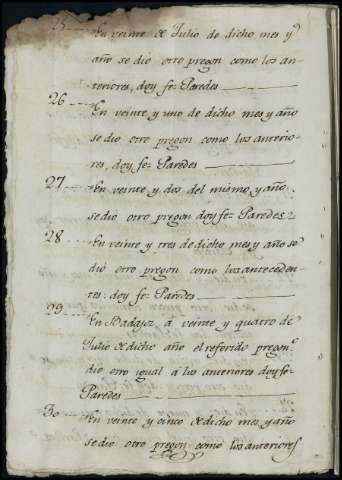 25 En veinte de Julio de dicho mes y
año se dio otro pregon como los an-
teriores, doy fe= Paredes
26 En veinte y uno de dicho mes y año
se dio otro pregon como los anterio-
res, doy fe= Paredes
27 En veinte y dos del mismo, y año
se dio otro pregon doy fe= Paredes
28 En veinte y tres de dicho mes y año se
dió otro pregon como los anteceden-
tes: doy fe= Paredes
29 En Badajoz á veinte y quatro de
Julio de dicho año el referido pregon.º
dio otro igual á los anteriores doy fe=
Paredes
30 En veinte y cinco de dicho mes y año
se dio otro pregon como los anteriores